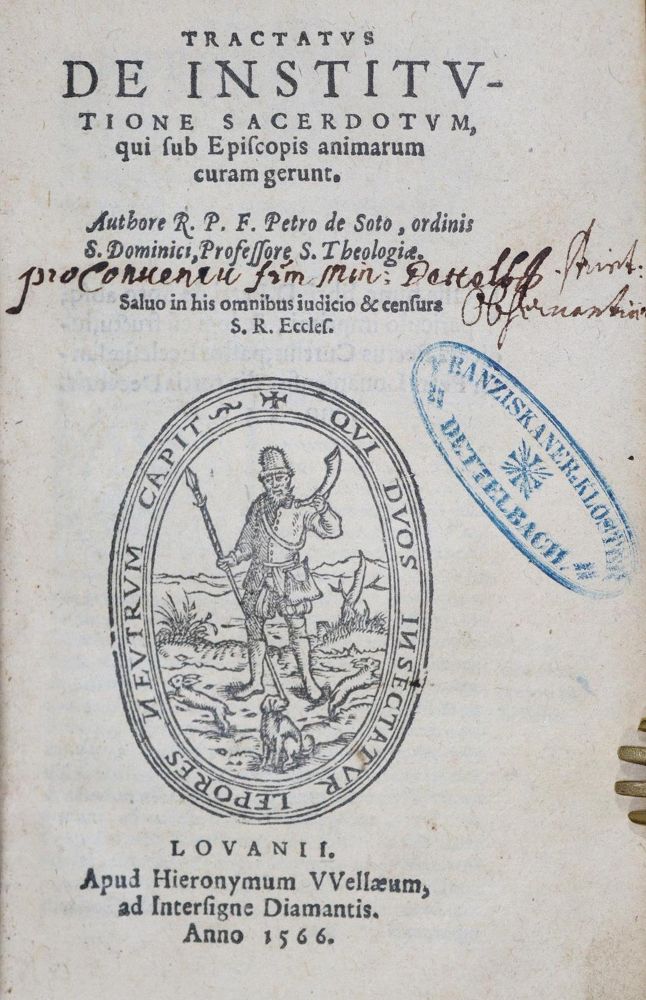 TRACTATVS
DE INSTITV-
TIONE SACERDOTVM,
qui ſub Epiſcopis animarum
curam gerunt.
Authore R. P. F. Petro de Soto, ordinis
S. Dominici, Profeſſore S. Theologiæ.
pro Conuentu frm Min: Dettelb. strict:
Obſeruantiæ
Saluo in his omnibus iudicio & cenſura
S. R. Eccleſ.
FRANZISKANER-KLOSTER
DETTELBACH.
QVI DVOS INSECTATVR LEPORES NEVTRVM CAPIT
LOVANII.
Apud Hieronymum VVellæum,
ad Interſigne Diamantis.
Anno 1566.